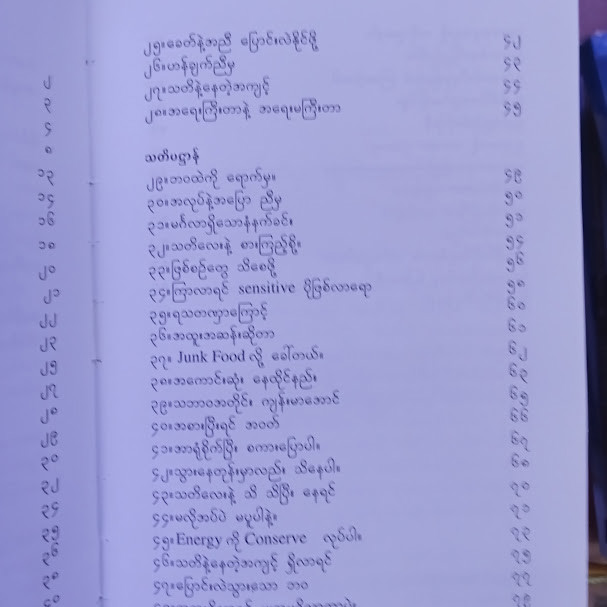 ၂
၃
၄
၈
၁၃
၁၄
၁၆
၁၈
၂၀
၂၁
၂၂
၂၃
၂၅
၂၇
၂၈
၂၉
၃၀
၃၂
၃၄
၃၅
၃၆
၃၈
၄၀
၂၅။ခေတ်နဲ့အညီ ပြောင်းလဲနိုင်ဖို့ ၄၂
၂၆။ဟန်ချက်ညီမှ ၄၃
၂၇။သတိနဲ့နေတဲ့အကျင့် ၄၄
၂၈။အရေးကြီးတာနဲ့ အရေးမကြီးတာ ၄၅
သတိပဋ္ဌာန်
၂၉။ဘဝထဲကို ရောက်မှ။ ၄၉
၃၀။အလုပ်နဲ့အပြော ညီမှ ၅၀
၃၁။မင်္ဂလာရှိသောနံနက်ခင်း ၅၁
၃၂။သတိလေးနဲ့ စားကြည့်စို့။ ၅၄
၃၃။ဖြစ်စဉ်တွေ သိစေဖို့ ၅၆
၃၄။ကြာလာရင် sensitive ပိုဖြစ်လာရော ၅၈
၃၅။ရသတဏှာကြောင့် ၆၀
၃၆။အထူးအဆန်းဆိုတာ ၆၁
၃၇။ Junk Food လို့ ခေါ်တယ်။ ၆၂
၃၈။အကောင်းဆုံး နေထိုင်နည်း ၆၃
၃၉။သဘာဝအတိုင်း ကျန်းမာအောင် ၆၅
၄၀။အစားပြီးရင် အဝတ် ၆၆
၄၁။အာရုံစိုက်ပြီး စကားပြောပါ။ ၆၇
၄၂။သွားနေတုန်းမှာလည်း သိနေပါ။ ၆၈
၄၃။သတိလေးနဲ့ သိ သိပြီး နေရင် ၇၀
၄၄။မလိုအပ်ပဲ မပူပါနဲ့။ ၇၁
၄၅။Energy ကို Conserve လုပ်ပါ။ ၇၃
၄၆။သတိနဲ့နေတဲ့အကျင့် ရှိလာရင် ၇၅
၄၇။ပြောင်းလဲသွားသော ဘဝ ၇၇